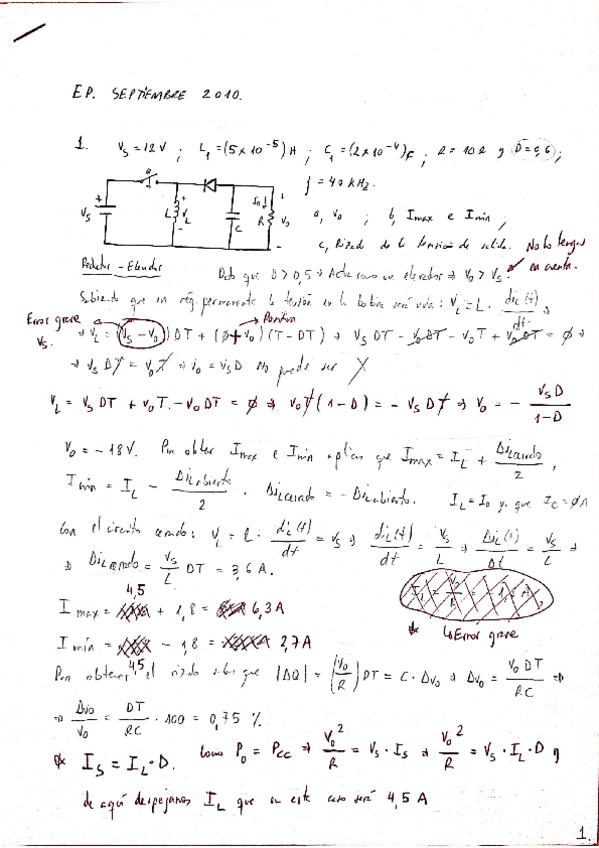 E.P. SEPTIEMBRE 2010.
1. Vs = 12 V ; L1 = (5x10^-5) H ; C1 = (2x10^-4) F ; R = 10 Ω y D = 0,6 ;
f = 40 kHz.
a, Vo ; b, Imax e Imin ;
c, Rizado de la tension de salida. No lo tengas en cuenta.
Vs L VL C R Io Vo
Reductor - Elevador
Dado que D > 0,5 → Actua como un elevador → Vo > Vs.
Sabiendo que en rég. permanente la tensión en la bobina será nula: VL = L · diL(t)/dt,
Error grave Positivo
Vs.
→ VL = (Vs - Vo) DT + (Ø + Vo)(T - DT) → Vs DT - Vo DT - VoT + Vo DT = Ø →
→ Vs DT = Vo T → Vo = Vs D No puede ser X
VL = Vs DT + VoT - Vo DT = Ø → VoT (1 - D) = - Vs DT → Vo = - Vs D / 1-D
Vo = - 18 V. Para obtener Imax e Imin aplico que Imax = IL + ΔiLcerrado / 2 ,
Imin = IL - ΔiLabierto / 2 . ΔiLcerrado = - ΔiLabierto. IL = Io ya que IC = Ø A
Con el circuito cerrado: VL = L · diL(t)/dt = Vs → diL(t)/dt = Vs/L → ΔiL(t)/Dt = Vs/L →
→ ΔiLcerrado = Vs/L DT = 3,6 A.
4,5
Imax = + 1,8 = 6,3 A
* ↳ Error grave
Imín = - 1,8 = 2,7 A
4,5
Para obtener el rizado sabes que |ΔQ| = (Vo/R) DT = C · ΔVo → ΔVo = Vo DT / RC →
→ ΔVo/Vo = DT/RC · 100 = 0,75 %.
* IS = IL · D. Como Po = Pcc → Vo²/R = Vs · Is → Vo²/R = Vs · IL · D y
de aquí despejamos IL que en este caso será 4,5 A
1.